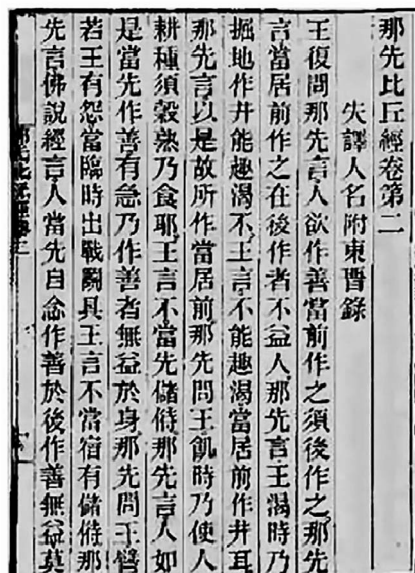 那先比丘經卷第二
失譯人名附東晉錄
王復問那先言人欲作善當前作之須後作之那先
言當居前作之在後作者不益人那先言王渴時乃
掘地作井能趣渴不王言不能趣渴當居前作井耳
那先言以是故所作當居前那先問王飢時乃使人
耕種須穀熟乃食耶王言不當先儲偫那先言人如
是當先作善有急乃作善者無益於身那先問王譬
若王有怨當臨時出戰鬬具王言不當宿有儲偫那
先言佛說經言人當先自念作善於後作善無益莫
那先比丘經卷二